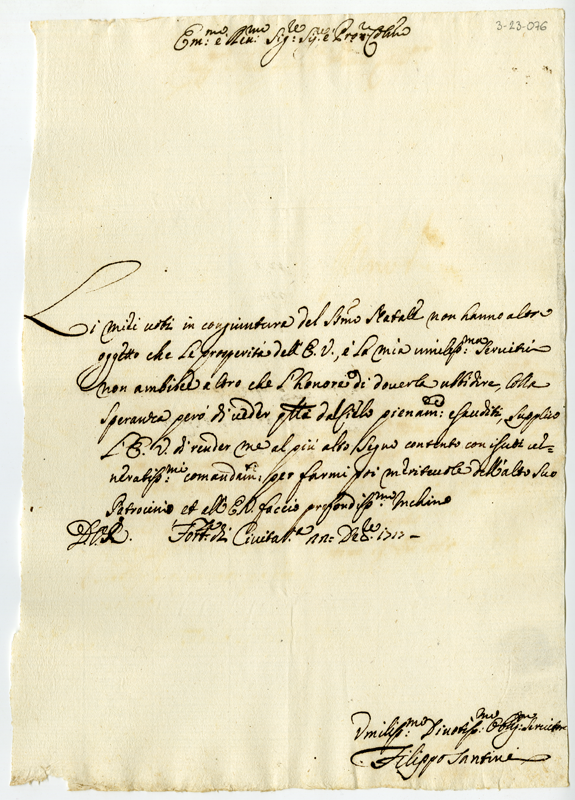 3-23-076
Em.mo e Rev.mo Sig.re Sig.re e Pron.e Col.mo
Li miei voti in congiuntura del S.mo Natale non hanno altro
oggetto che la prosperità dell'E. V., e la mia umiliss.ma Servitù
non ambisce altro che l'honore di doverla ubbidire, Colla
speranza però di veder dal Cielo pienam.te esauditi, supplico
l'E. V. di render me al più alto segno contento con i suoi ve-
neratiss.mi comandam.ti per farmi poi meritevole dell'alto suo
Patrocinio et all'E. V. faccio profondiss.mo Inchino
D.V.E. Fort.a di Civitav.a Xbre 1713 -
Umiliss.mo Divotiss.mo Oblig.mo Servitore
Filippo Santini